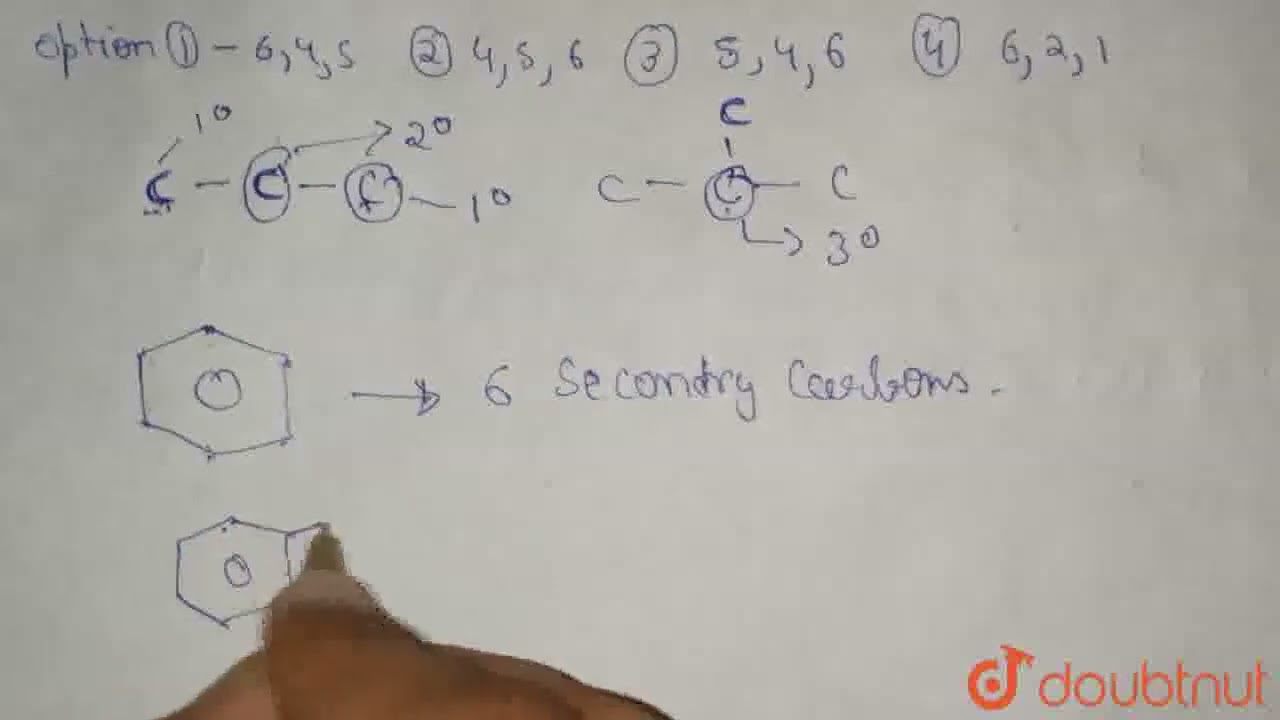 option ① - 6,4,5 ② 4,5,6 ③ 5,4,6 ④ 6,2,1
1° C
C - C - C 2°
1° C - C - C
3°
6 Secondry Carbons.
doubtnut